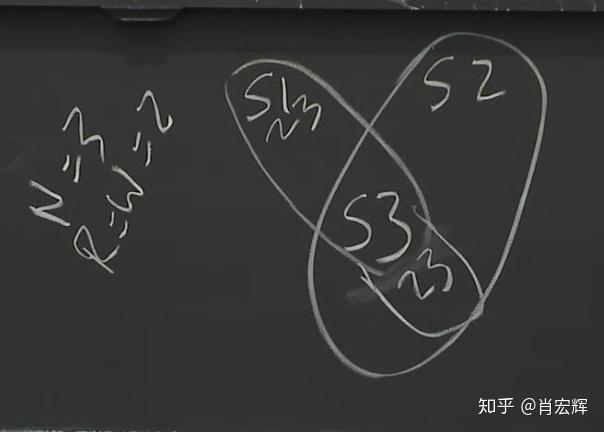 N=3
R=W=2
S1
23
S2
S3
23
知乎 @肖宏辉